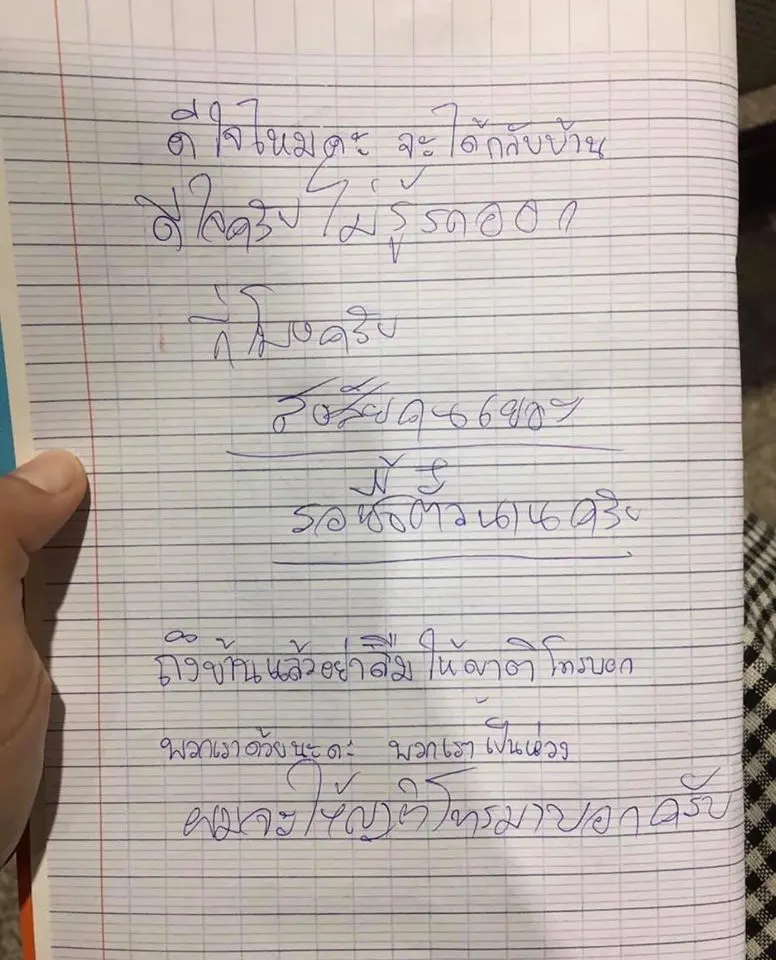 ดีใจไหมคะ จะได้กลับบ้าน
ดีใจครับ ไม่รู้รถออก
กี่โมงครับ
สงสัยคนเยอะ
รอคิวนานครับ
ถึงบ้านแล้วอย่าลืม ให้ญาติ โทรบอก
พวกเราด้วยนะคะ พวกเราเป็นห่วง
ผมจะให้ญาติโทรมาบอกครับ